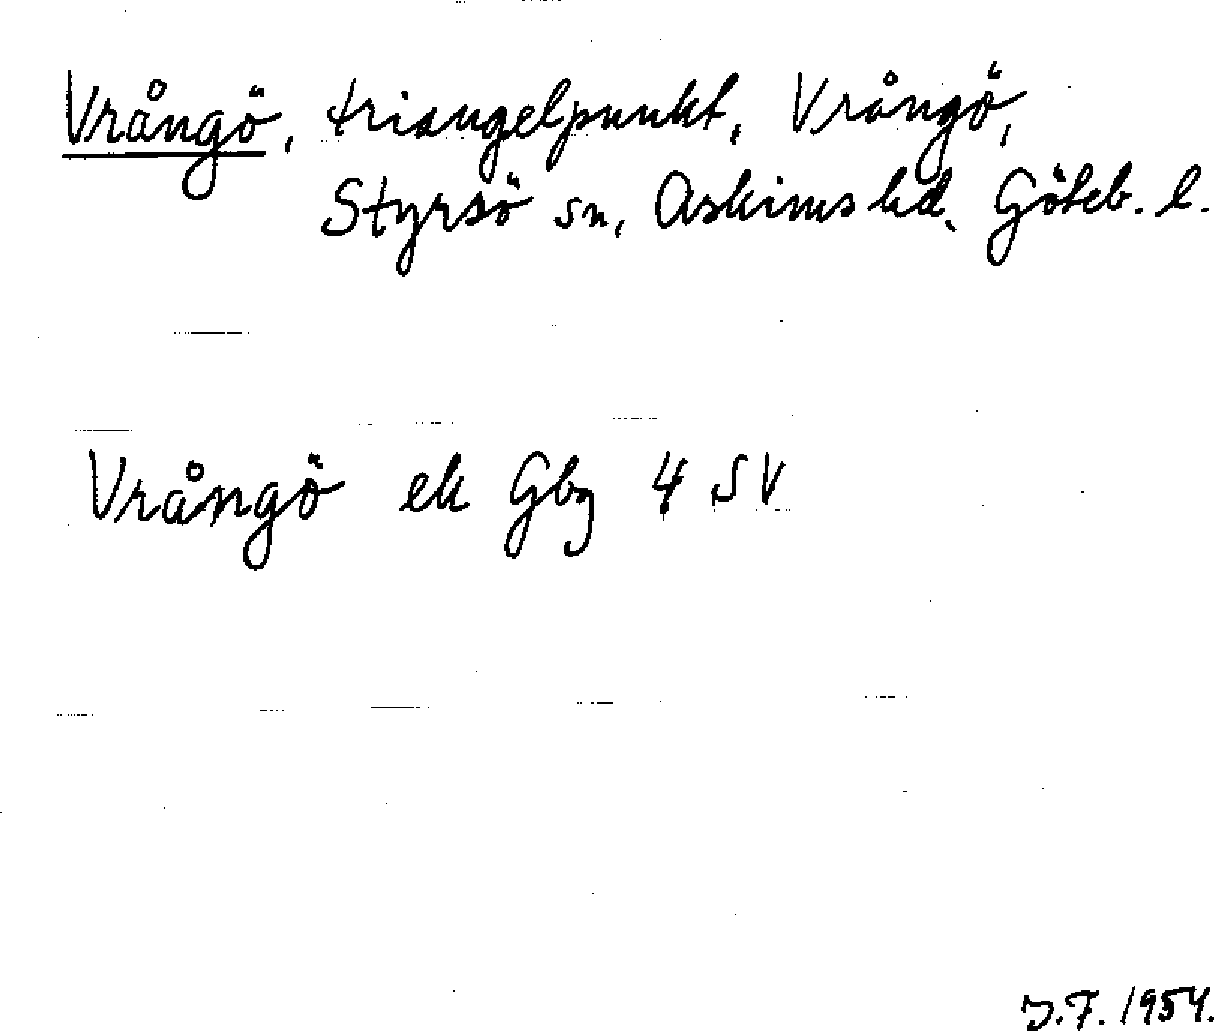 Vrångö, triangelpunkt, Vrångö,
Styrsö sn, Askims hd, Göteb. l.
Vrångö ek Gbg 4 SV
J.F. 1954.